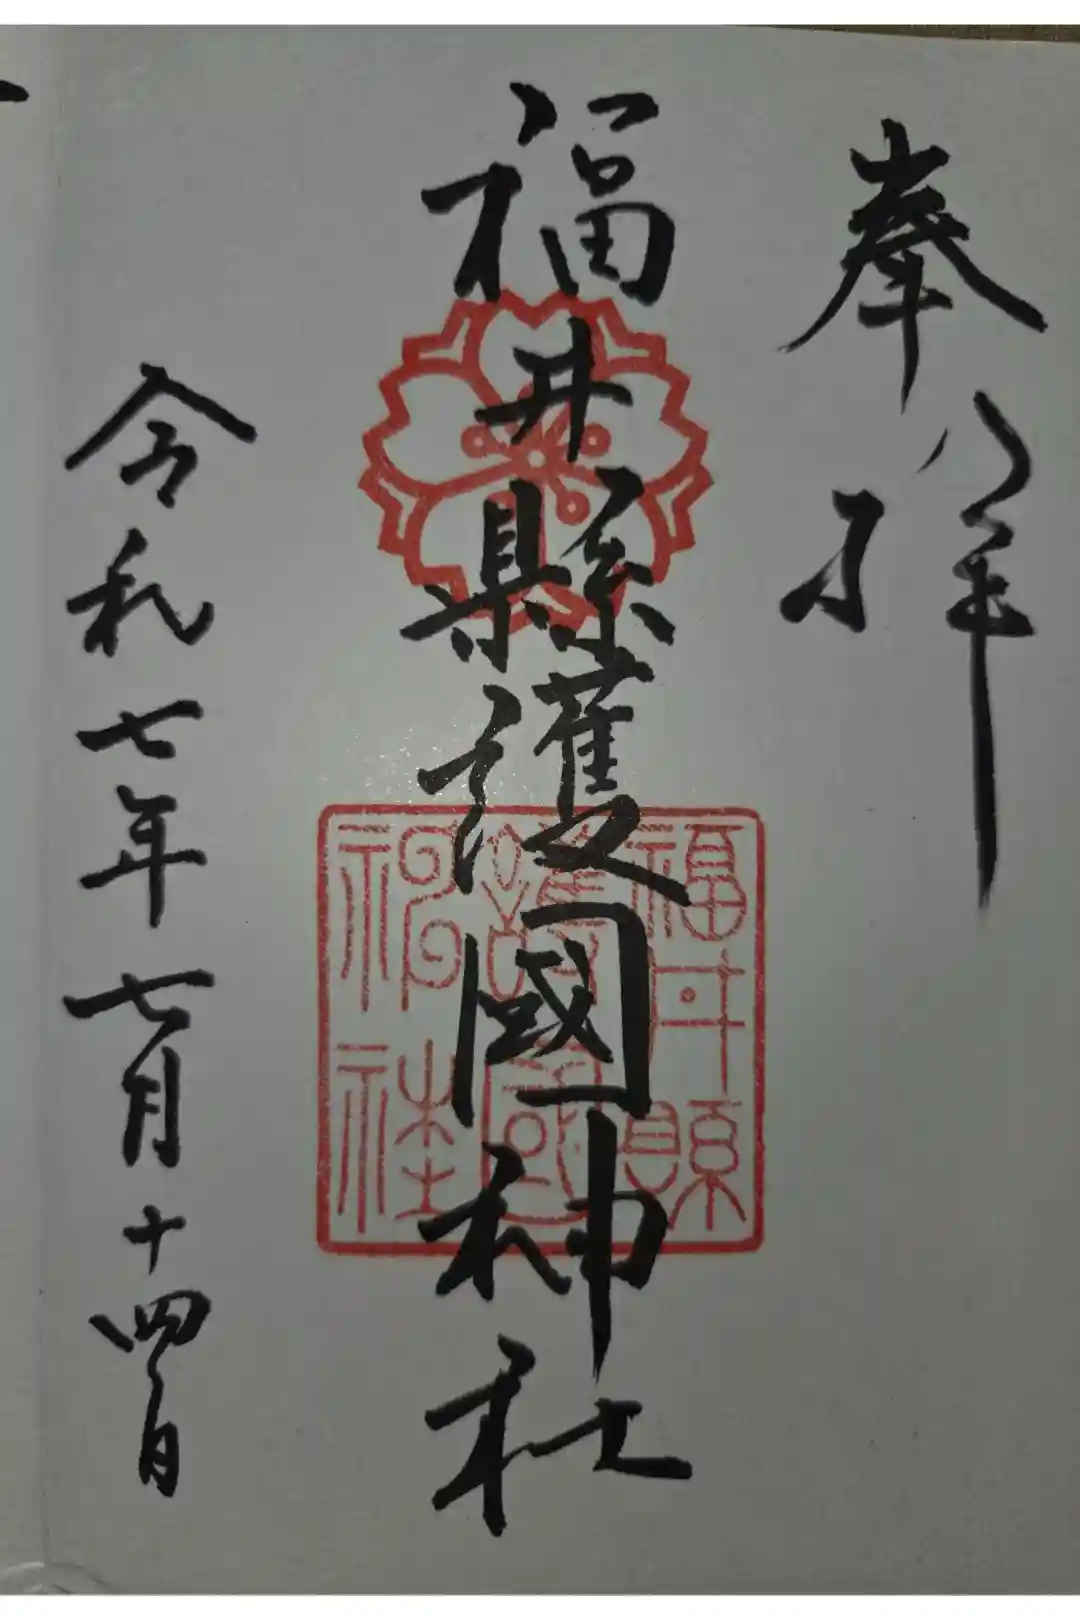 奉拝
福井縣護國神社
福井縣
護國
神社
令和七年七月十四日